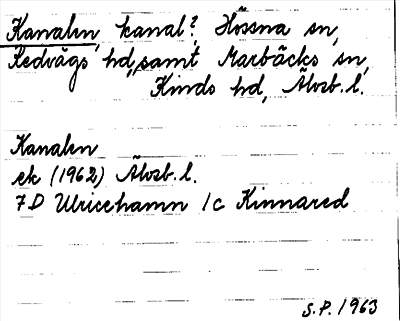 Kanalen, kanal?, Hössna sn,
Redvägs hd, samt Marbäcks sn,
Kinds hd, Älvsb. l.
Kanalen
ek (1962) Älvsb. l.
7 D Ulricehamn 1c Kinnared
S.P. 1963